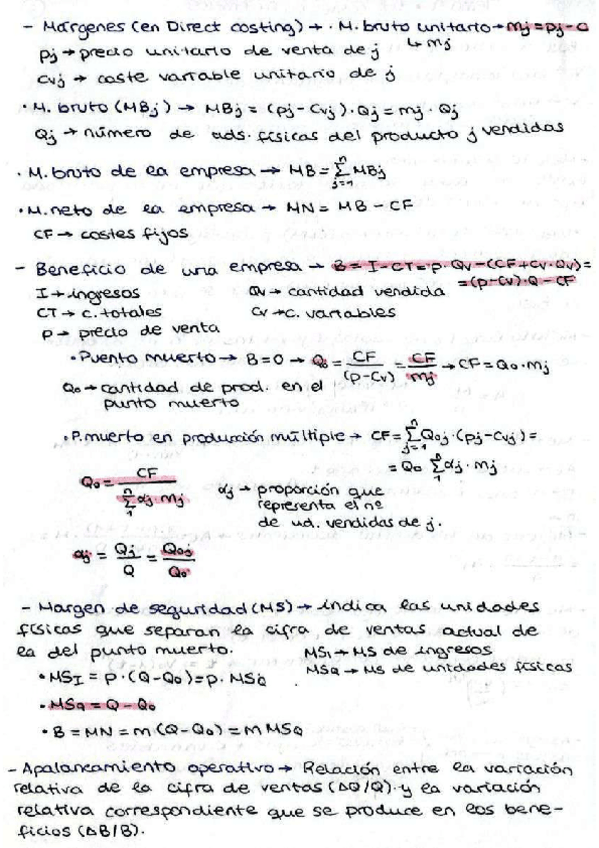 - Márgenes (en Direct costing) → · M. bruto unitario → mj = pj - c
↳ mj
pj → precio unitario de venta de j
cvj → coste variable unitario de j
· M. bruto (MBj) → MBj = (pj - Cvj) · Qj = mj · Qj
Qj → número de uds. físicas del producto j vendidas
· M. bruto de la empresa → MB = n∑j=1 MBj
· M. neto de la empresa → MN = MB - CF
CF → costes fijos
- Beneficio de una empresa → B = I - CT = p · Qv - (CF + Cv · Qv) =
= (p - Cv) · Q - CF
I → ingresos Qv → cantidad vendida
CT → c. totales Cv → c. variables
p → precio de venta
· Punto muerto → B = 0 → Q0 = CF/(p - Cv) = CF/mj → CF = Q0 · mj
Q0 → cantidad de prod. en el
punto muerto
· P. muerto en producción múltiple → CF = n∑j=1 Q0j · (pj - Cvj) =
= Q0 n∑1 αj · mj
Q0 = CF / n∑1 αj mj αj → proporción que
representa el nº
de ud. vendidas de j.
αj = Qj/Q = Q0j/Q0
- Margen de seguridad (MS) → indica las unidades
físicas que separan la cifra de ventas actual de
la del punto muerto. MSI → MS de ingresos
MSQ → MS de unidades físicas
· MSI = p · (Q - Q0) = p · MSQ
· MSQ = Q - Q0
· B = MN = m (Q - Q0) = m MSQ
- Apalancamiento operativo → Relación entre la variación
relativa de la cifra de ventas (ΔQ/Q) y la variación
relativa correspondiente que se produce en los bene-
ficios (ΔB/B).